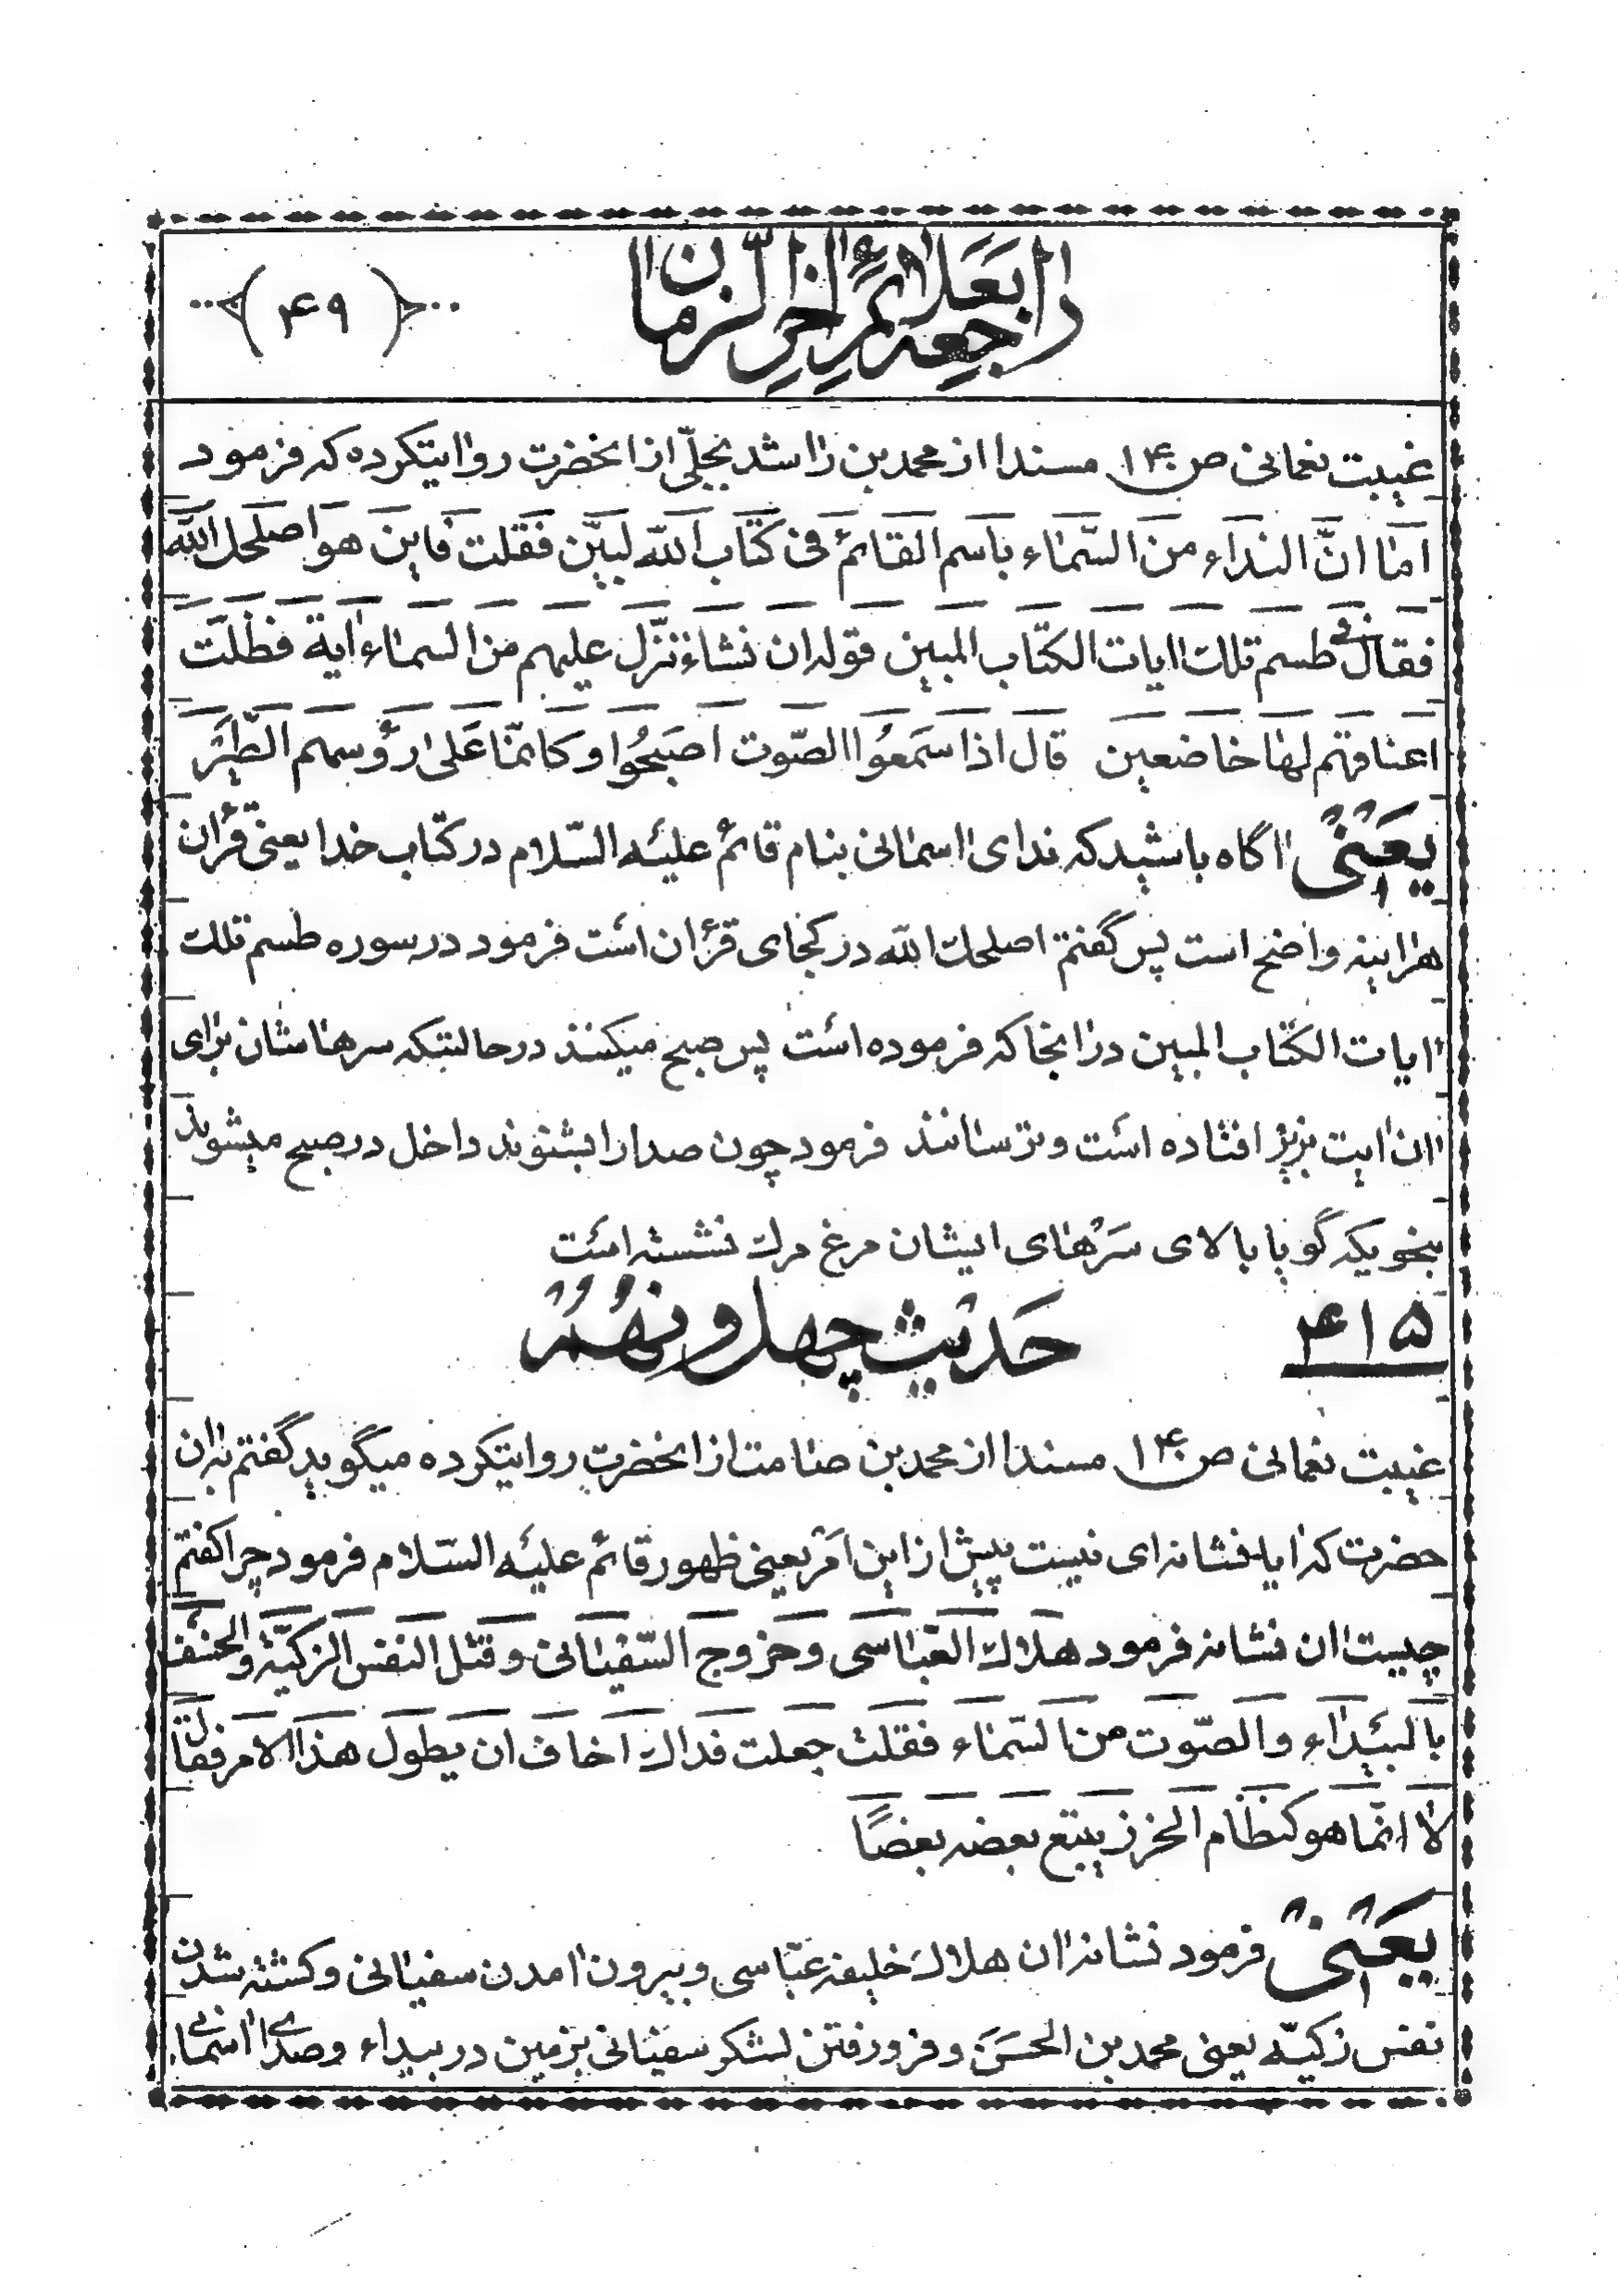 راجعه بعلائم اخر الزمان
(۴۹)
غیبت نعمانی ص۱۴۰ مسندا از محمد بن راشد بجلّی از انحضرت روایتکرده که فرمود
اما انّ النداء من السّماء باسم القائم فی کتاب الله لبیّن فقلت فاین هو اصلحك الله
فقال فی طسم تلك ایات الکتاب المبین قوله ان نشاء ننزّل علیهم من السماء اٰیة فظلّت
اعناقهم لها خاضعین قال اذا سمعوا الصّوت اصبحُوا و کانّما علی رؤوسهم الطّیر
یعنی اگاه باشید که ندای اسمانی بنام قائم علیه السّلام در کتاب خدا یعنی قرأن
هراینه واضح است پس گفتم اصلحك الله در کجای قرأن است فرمود در سوره طسم تلك
ایات الکتاب المبین در انجا که فرموده است پس صبح میکنند در حالتیکه سرهاشان برای
ان ایت بزیر افتاده است و ترسانند فرمود چون صدا را بشنوند داخل در صبح میشوند
بنحویکه گویا بالای سَرهای ایشان مرغ مرك نشسته است
۴۱۵ حدیث چهل و نهم
غیبت نعمانی ص۱۴۰ مسندا از محمد بن صامت از انحضرت روایتکرده میگوید گفتم بان
حضرت که ایا نشانه ای نیست پیش از این امر یعنی ظهور قائم علیه السّلام فرمود چرا گفتم
چیست ان نشانه فرمود هلاك العبّاسی و خروج السّفیانی و قتل النفس الزکیّة و الخسف
بالبیداء و الصّوت من السّماء فقلت جعلت فداك اخاف ان یطول هذا الامر فقال
لا انّما هو کنظام الخرز یتبع بعضه بعضًا
یعنی فرمود نشانه ان هلاك خلیفه عبّاسی و بیرون امدن سفیانی و کشته شدن
نفس زکیّه یعنی محمد بن الحسن و فرو رفتن لشکر سفیانی بزمین در بیداء و صدای اسمانی